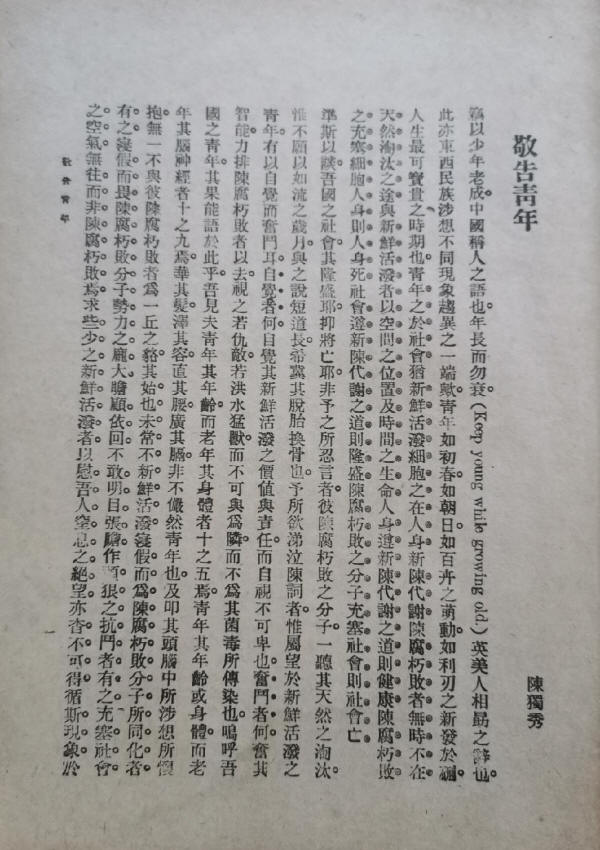 敬告青年
陳獨秀
竊以少年老成中國稱人之語也年長而勿衰(Keep young while growing old.)英美人相勗之辭也
此亦東西民族涉想不同現象趨異之一端歟青年如初春如朝日如百卉之萌動如利刃之新發於硎
人生最可寶貴之時期也青年之於社會猶新鮮活潑細胞之在人身新陳代謝陳腐朽敗者無時不在
天然淘汰之途與新鮮活潑者以空間之位置及時間之生命人身遵新陳代謝之道則健康陳腐朽敗
之充塞細胞人身則人身死社會遵新陳代謝之道則隆盛陳腐朽敗之分子充塞社會則社會亡
準斯以談吾國之社會其隆盛耶抑將亡耶非予之所忍言者彼陳腐朽敗之分子一聽其天然之淘汰
惟不願以如流之歲月與之說短道長希冀其脫胎換骨也予所欲涕泣陳詞者惟屬望於新鮮活潑之
青年有以自覺而奮鬥耳自覺者何自覺其新鮮活潑之價值與責任而自視不可卑也奮鬥者何奮其
智能力排陳腐朽敗者以去視之若仇敵若洪水猛獸而不可與爲隣而不爲其菌毒所傳染也嗚呼吾
國之青年其果能語於此乎吾見夫青年其年齡而老年其身體者十之五焉青年其年齡或身體而老
年其腦神經者十之九焉華其髮澤其容直其腰廣其膈非不儼然青年也及叩其頭腦中所涉想所懷
抱無一不與彼陳腐朽敗者爲一丘之貉其始也未常不新鮮活潑寖假而爲陳腐朽敗分子所同化者
有之寖假而畏陳腐朽敗分子勢力之龐大瞻顧依回不敢明目張膽作頑狠之抗鬥者有之充塞社會
之空氣無往而非陳腐朽敗焉求些少之新鮮活潑者以慰吾人窒息之絕望亦杳不可得循斯現象於
敬告青年
一